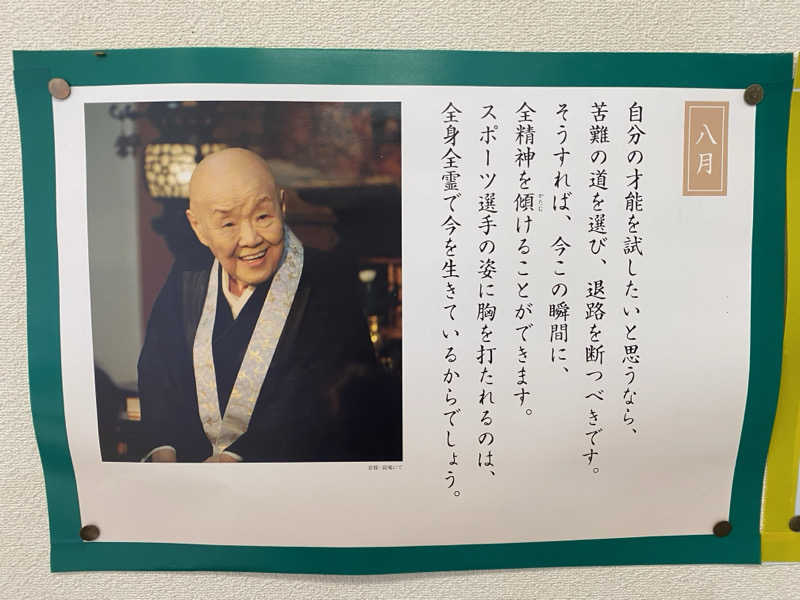 八月
自分の才能を試したいと思うなら、
苦難の道を選び、退路を断つべきです。
そうすれば、今この瞬間に、
全精神を傾けることができます。
かたむ
スポーツ選手の姿に胸を打たれるのは、
全身全霊で今を生きているからでしょう。